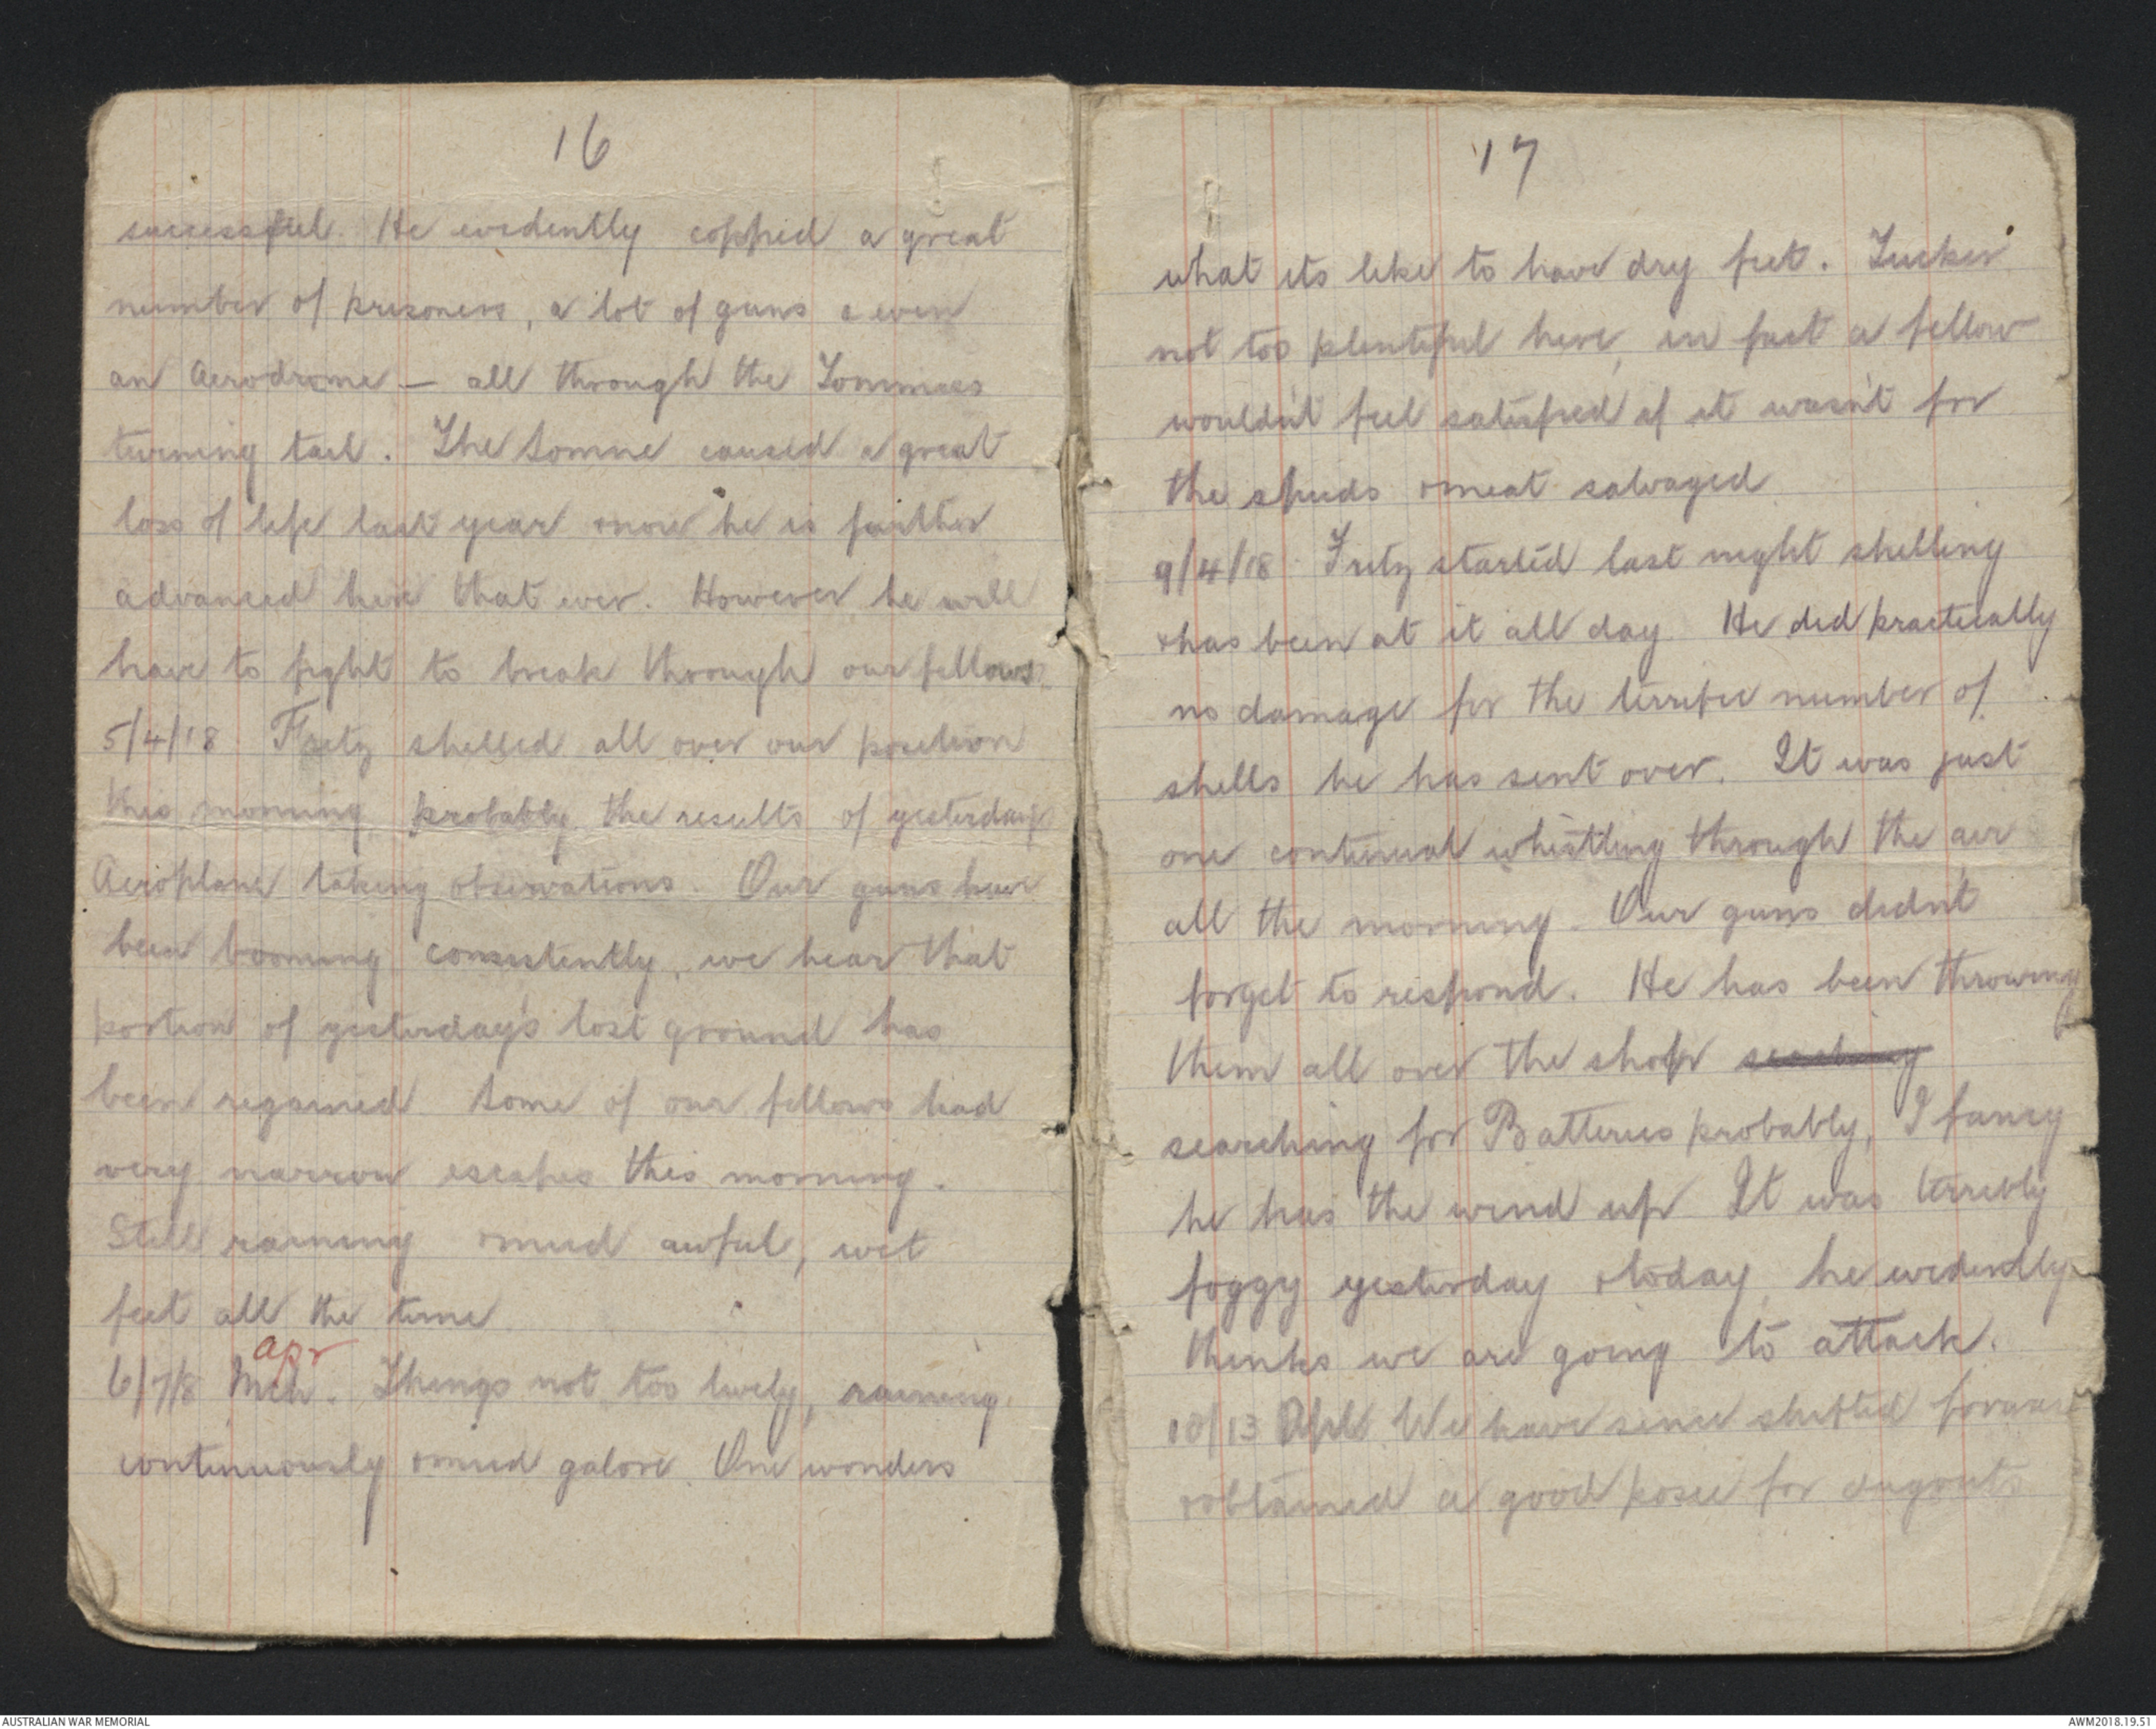 16
successful. He evidently copped a great
number of prisoners, a lot of guns & even
an Aerodrome — all through the Tommies
turning tail. The Somme caused a great
loss of life last year & now he is further
advanced here that ever. However he will
have to fight to break through our fellows.
5/4/18 Fritz shelled all over our position
this morning, probably the results of yesterdays
Aeroplane taking observations. Our guns have
been booming consistently, we hear that
portion of yesterday's lost ground has
been regained Some of our fellows had
very narrow escapes this morning.
Still raining & mud awful, wet
feet all the time
apr
6/7/8 Mch. Things not too lively, raining
continuously & mud galore. One wonders
17
what its like to have dry feet. Tucker
not too plentiful here, in fact a fellow
wouldn't feel satisfied if it wasn't for
the spuds & meat salvaged
9/4/18 Fritz started last night shelling
& has been at it all day He did practically
no damage for the terrific number of
shells he has sent over. It was just
one continual whistling through the air
all the morning. Our guns didn't
forget to respond. He has been throwing
them all over the shop
searching for Batteries probably, I fancy
he has the wind up It was terribly
foggy yesterday & today, he evidently
thinks we are going to attack.
10/13 Apl. We have since shifted forward
& obtained a good possie for dugouts
AUSTRALIAN WAR MEMORIAL
AWM2018.19.51